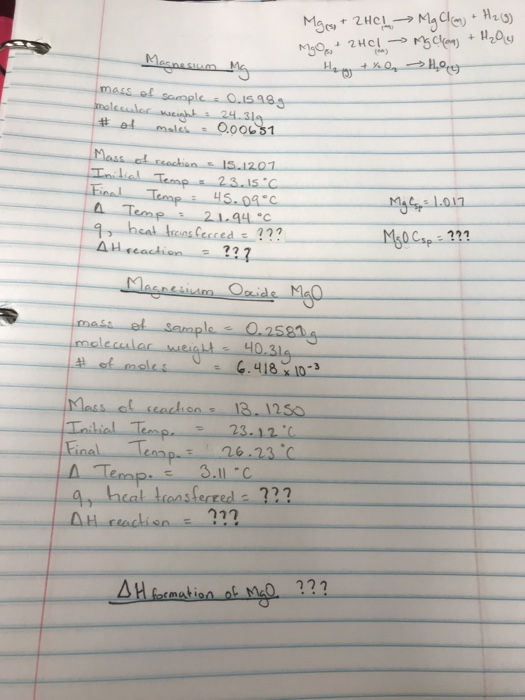 Mg(s) + 2HCl(aq) → MgCl(aq) + H2(g)
MgO(s) + 2HCl(aq) → MgCl(aq) + H2O(l)
H2(g) + ½ O2 → H2O(l)
Magnesium Mg
mass of sample = 0.1598g
molecular weight = 24.31g
# of moles = 0.00657
Mass of reaction = 15.1207
Initial Temp = 23.15°C
Final Temp = 45.09°C
Δ Temp = 21.94°C
q, heat transferred = ???
ΔH reaction = ???
Mg Csp = 1.017
MgO Csp = ???
Magnesium Oxide MgO
mass of sample = 0.2587g
molecular weight = 40.31g
# of moles = 6.418 x 10-3
Mass of reaction = 18.1250
Initial Temp. = 23.12°C
Final Temp. = 26.23°C
Δ Temp. = 3.11°C
q, heat transferred = ???
ΔH reaction = ???
ΔH formation of MgO ???